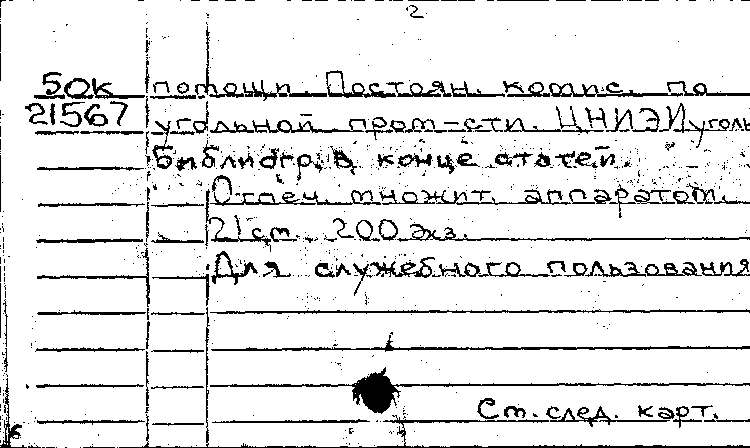 2
50К помощи. Постоян. комис. по
21567 угольной пром-сти. ЦНИЭИуголь
Библиогр. в конце статей.
Отпеч. множит. аппаратом.
21 ст. 200 экз.
Для служебного пользования
См. след. карт.